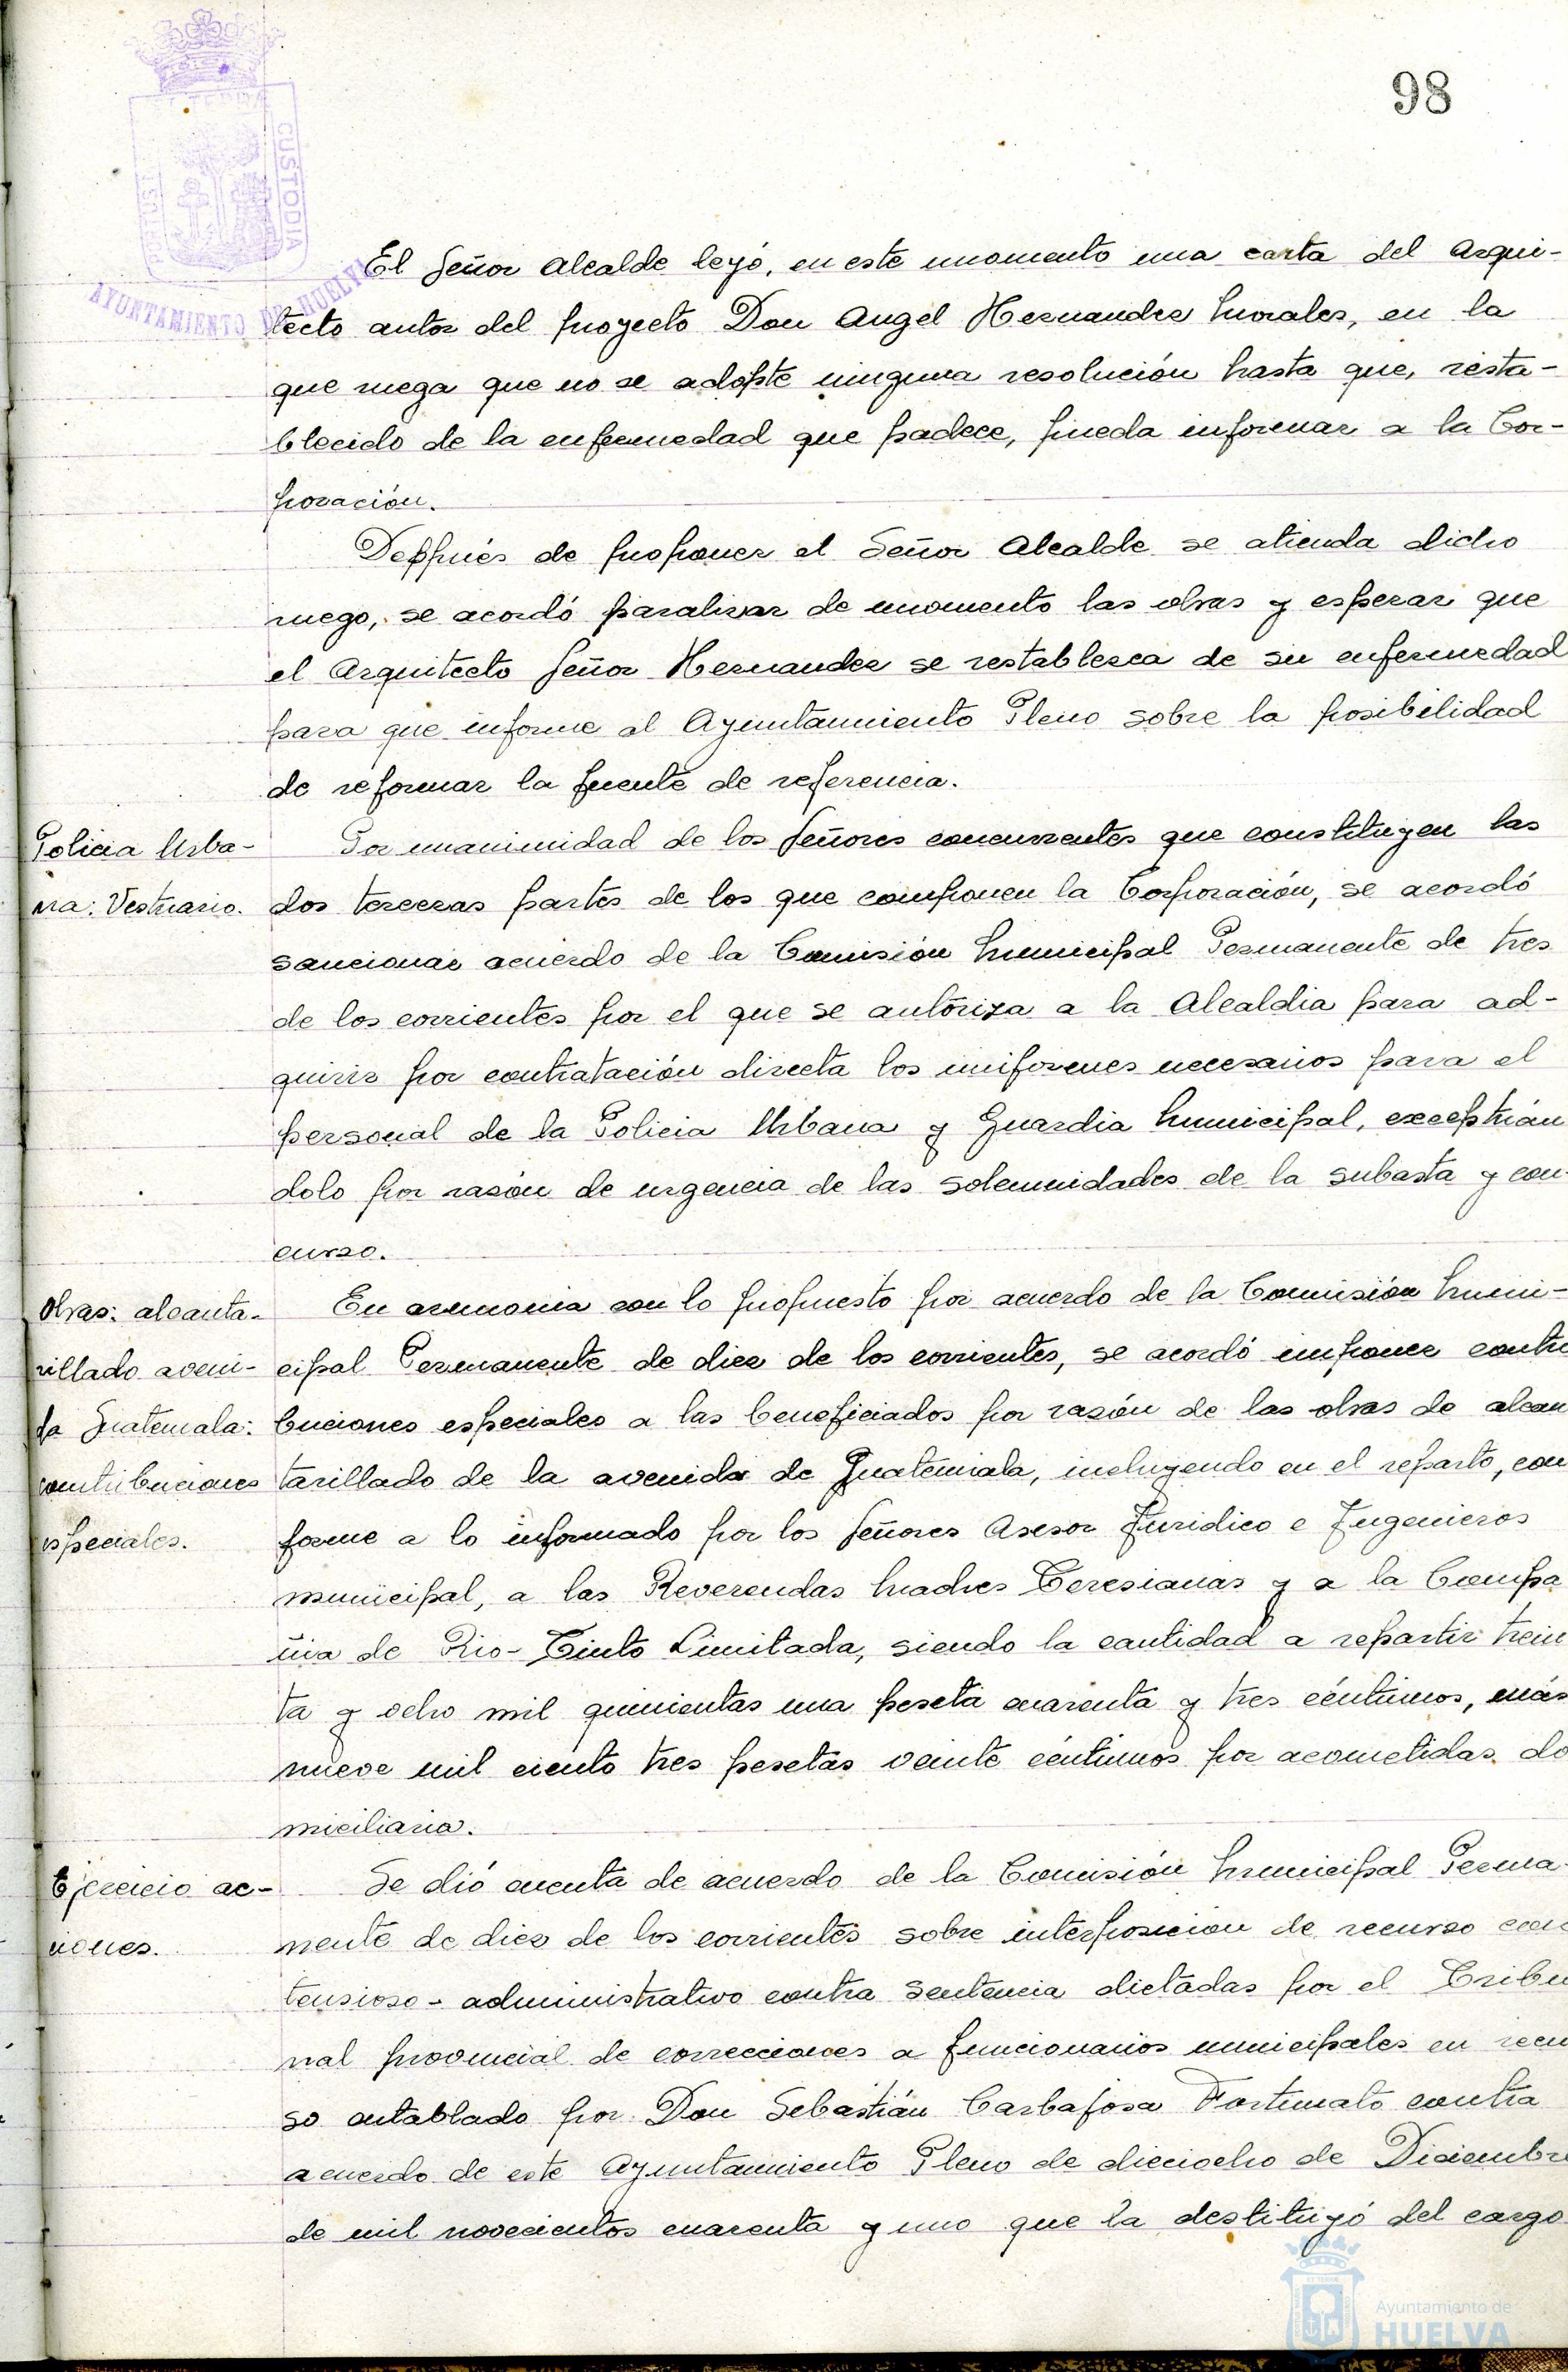 98
PORTUS MARIS ET TERRAE CUSTODIA
AYUNTAMIENTO DE HUELVA
El Señor Alcalde leyó, en este momento una carta del Arqui-
tecto autor del proyecto Don Angel Hernandez Morales, en la
que ruega que no se adopte ninguna resolución hasta que, resta-
blecido de la enfermedad que padece, pueda informar a la Cor-
poración.
Después de proponer el Señor Alcalde se atienda dicho
ruego, se acordó paralizar de momento las obras y esperar que
el Arquitecto Señor Hernandez se restablezca de su enfermedad
para que informe al Ayuntamiento Pleno sobre la posibilidad
de reformar la fuente de referencia.
Policia Urba-
na: Vestuario.
Por unanimidad de los Señores concurrentes que constituyen las
dos terceras partes de los que componen la Corporación, se acordó
sancionar acuerdo de la Comisión Municipal Permanente de tres
de los corrientes por el que se autoriza a la Alcaldia para ad-
quirir por contratación directa los uniformes necesarios para el
personal de la Policia Urbana y Guardia Municipal, exceptuán
dolo por razón de urgencia de las solemnidades de la subasta y con-
curso.
Obras: alcanta-
rillado aveni-
da Guatemala:
contribuciones
especiales.
En armonia con lo propuesto por acuerdo de la Comisión Muni-
cipal Permanente de diez de los corrientes, se acordó imponer contri
buciones especiales a las beneficiados por razón de las obras de alcan
tarillado de la avenida de Guatemala, incluyendo en el reparto, con
forme a lo informado por los Señores Asesor Juridico e Ingenieros
municipal, a las Reverendas Madres Teresianas y a la Compa
ñia de Rio-Tinto Limitada, siendo la cantidad a repartir trein
ta y ocho mil quinientas una peseta cuarenta y tres céntimos, más
nueve mil ciento tres pesetas veinte céntimos por acometidas do
miciliaria.
Ejercicio ac-
ciones.
Se dió cuenta de acuerdo de la Comisión Municipal Perma-
nente de diez de los corrientes sobre interposicion de recurso con
tensioso-administrativo contra sentencia dictadas por el Tribu
nal provincial de correcciones a funcionarios municipales en recu
so entablado por Don Sebastián Carbajosa Fortunato contra
acuerdo de este Ayuntamiento Pleno de dieciocho de Diciembre
de mil novecientos cuarenta y uno que la destituyó del cargo
Ayuntamiento de
HUELVA